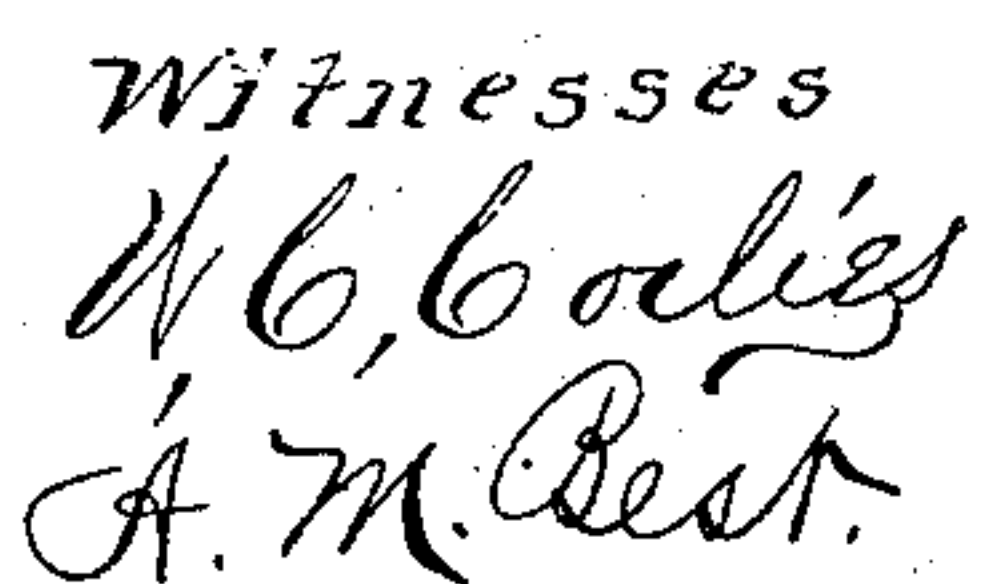 Witnesses
W. C. Corlies
A. M. Best.